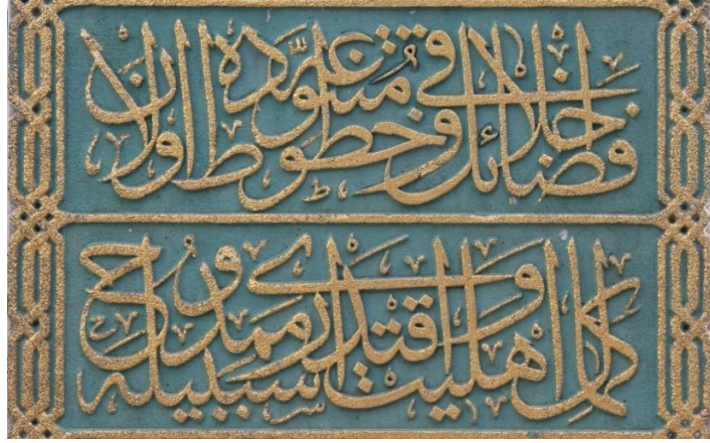 فضائل اخلاق و خطوط متنوعه ده اولان
كمال اهليت و اقتدارى ممدوح سبيله